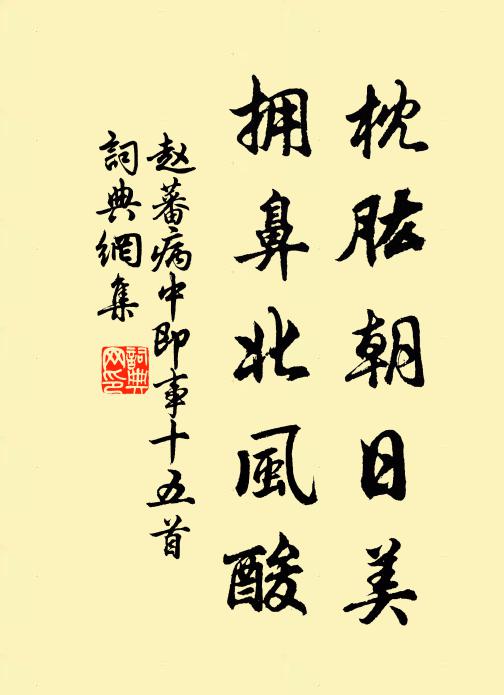 枕肱朝日美
拥鼻北風酸
赵蕃病中即事十五首
詞典網集
詞典
网印